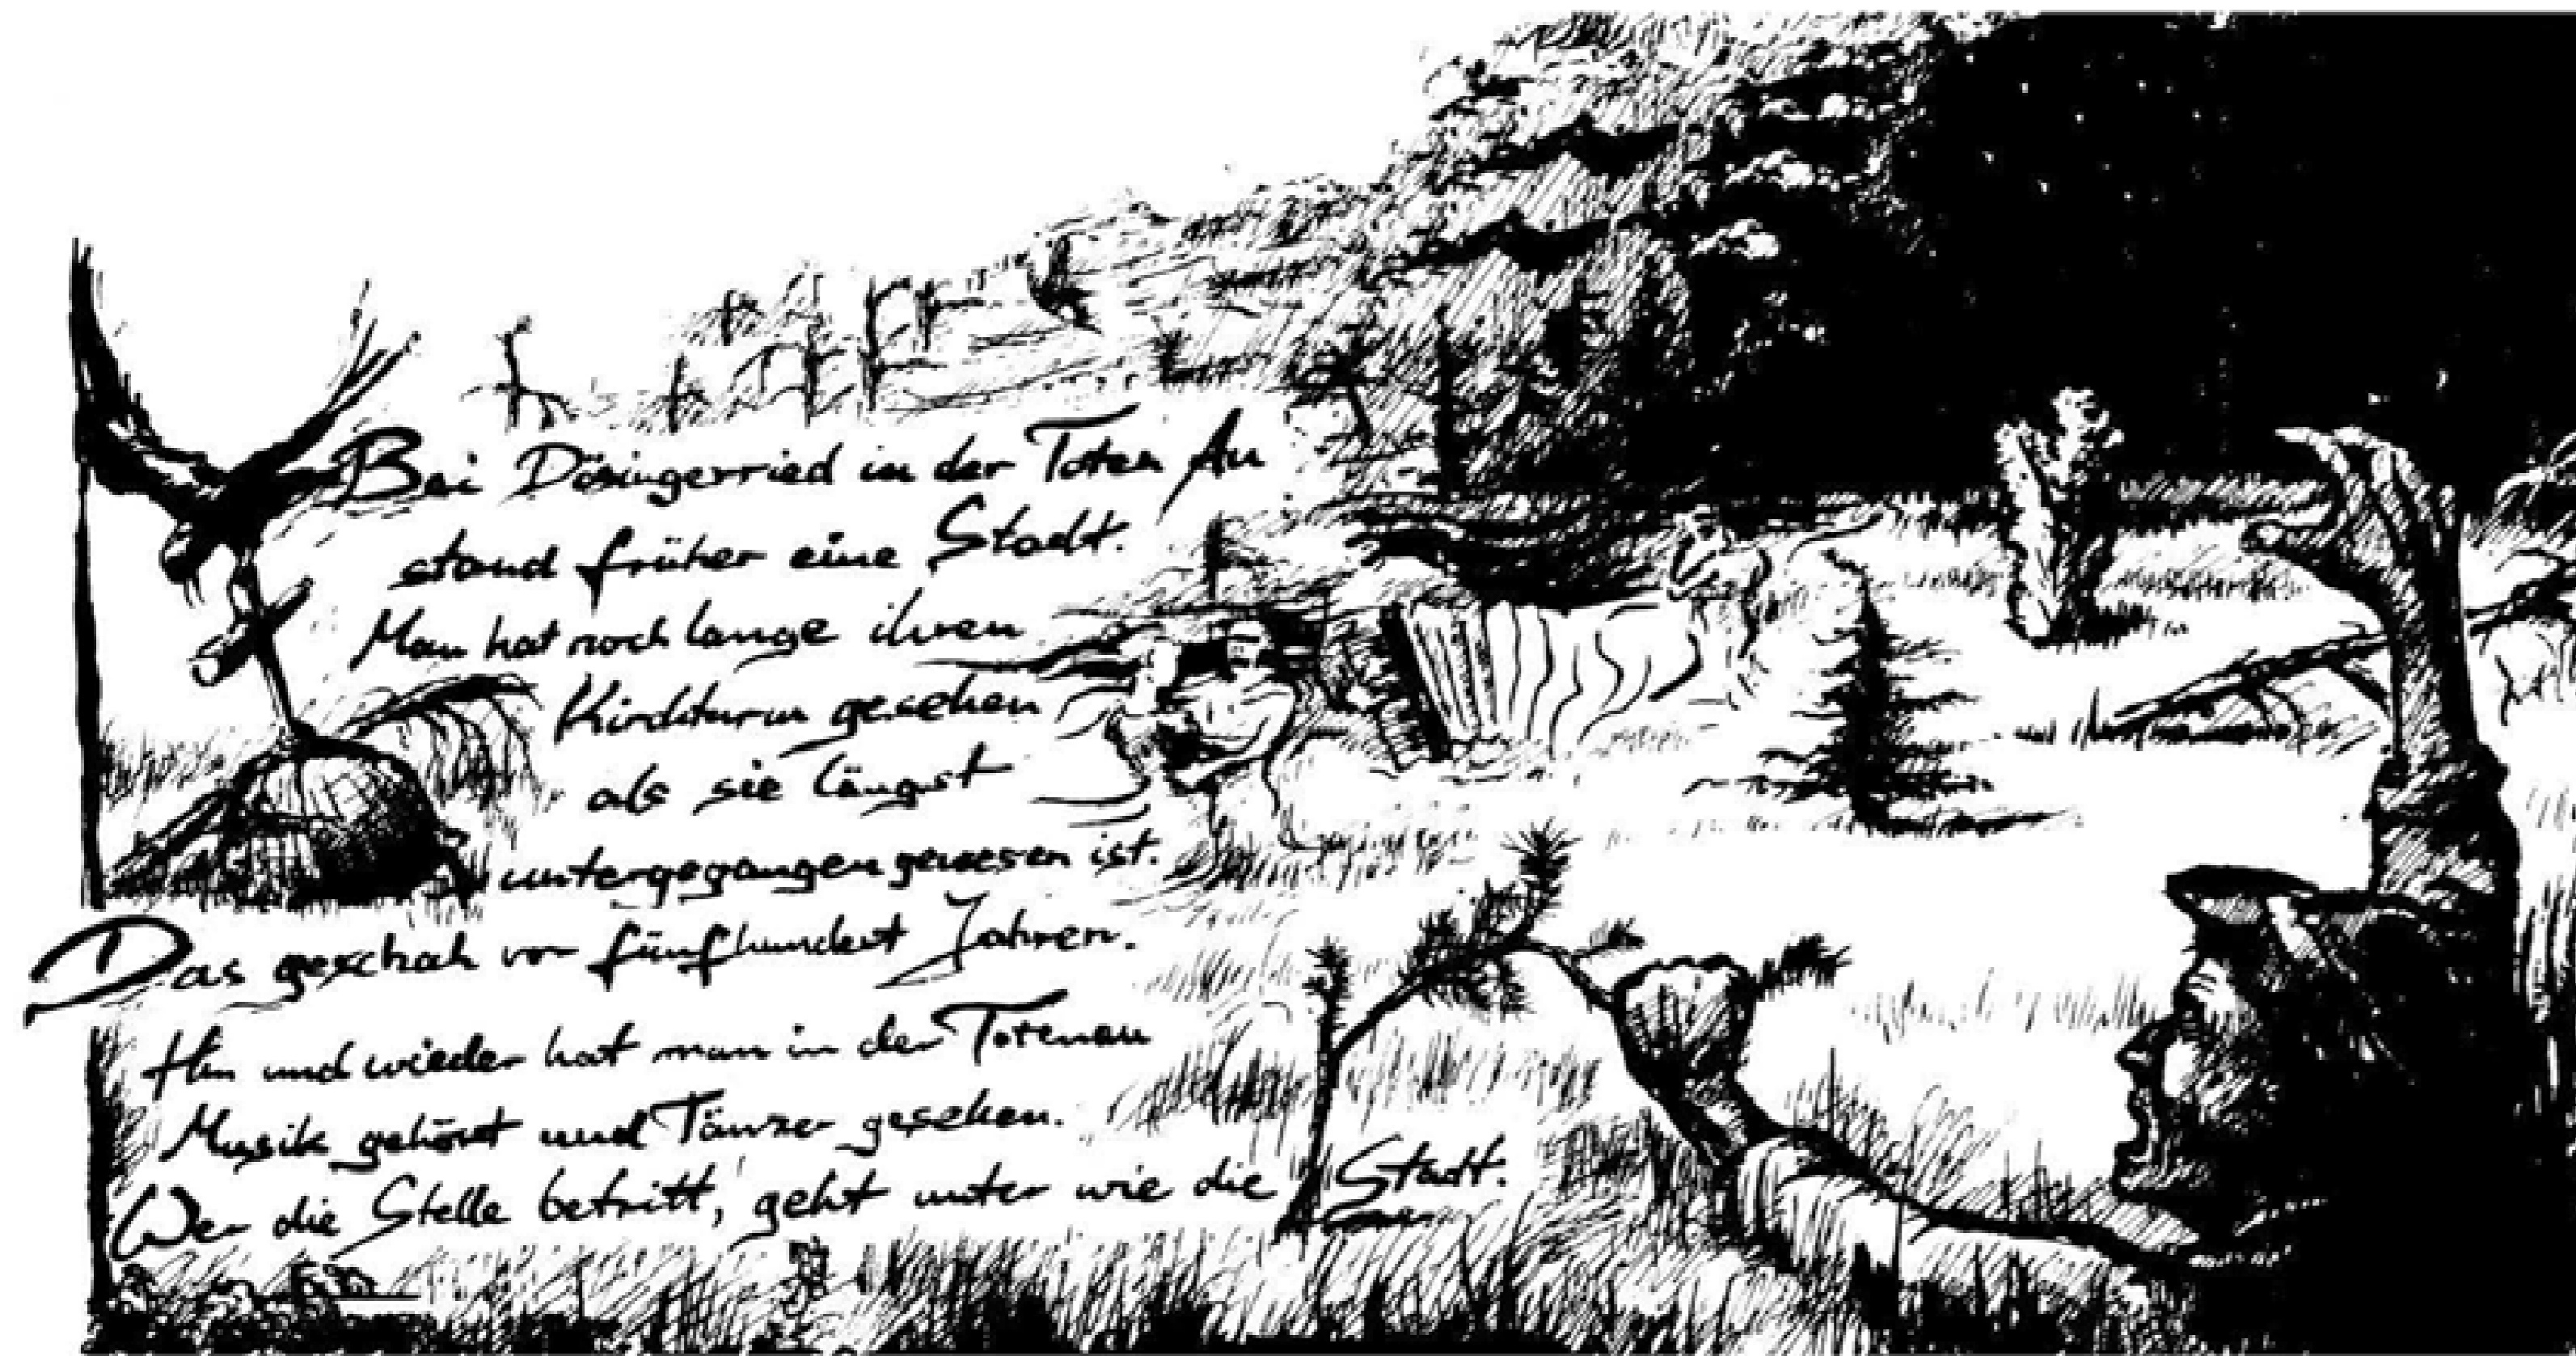 Bei Dösingerried in der Toten Au
stand früher eine Stadt.
Man hat noch lange ihren
Kirchturm gesehen
als sie längst
untergegangen gewesen ist.
Das geschah vor fünfhundert Jahren.
Hin und wieder hat man in der Totenau
Musik gehört und Tänzer gesehen.
Wer die Stelle betritt, geht unter wie die Stadt.